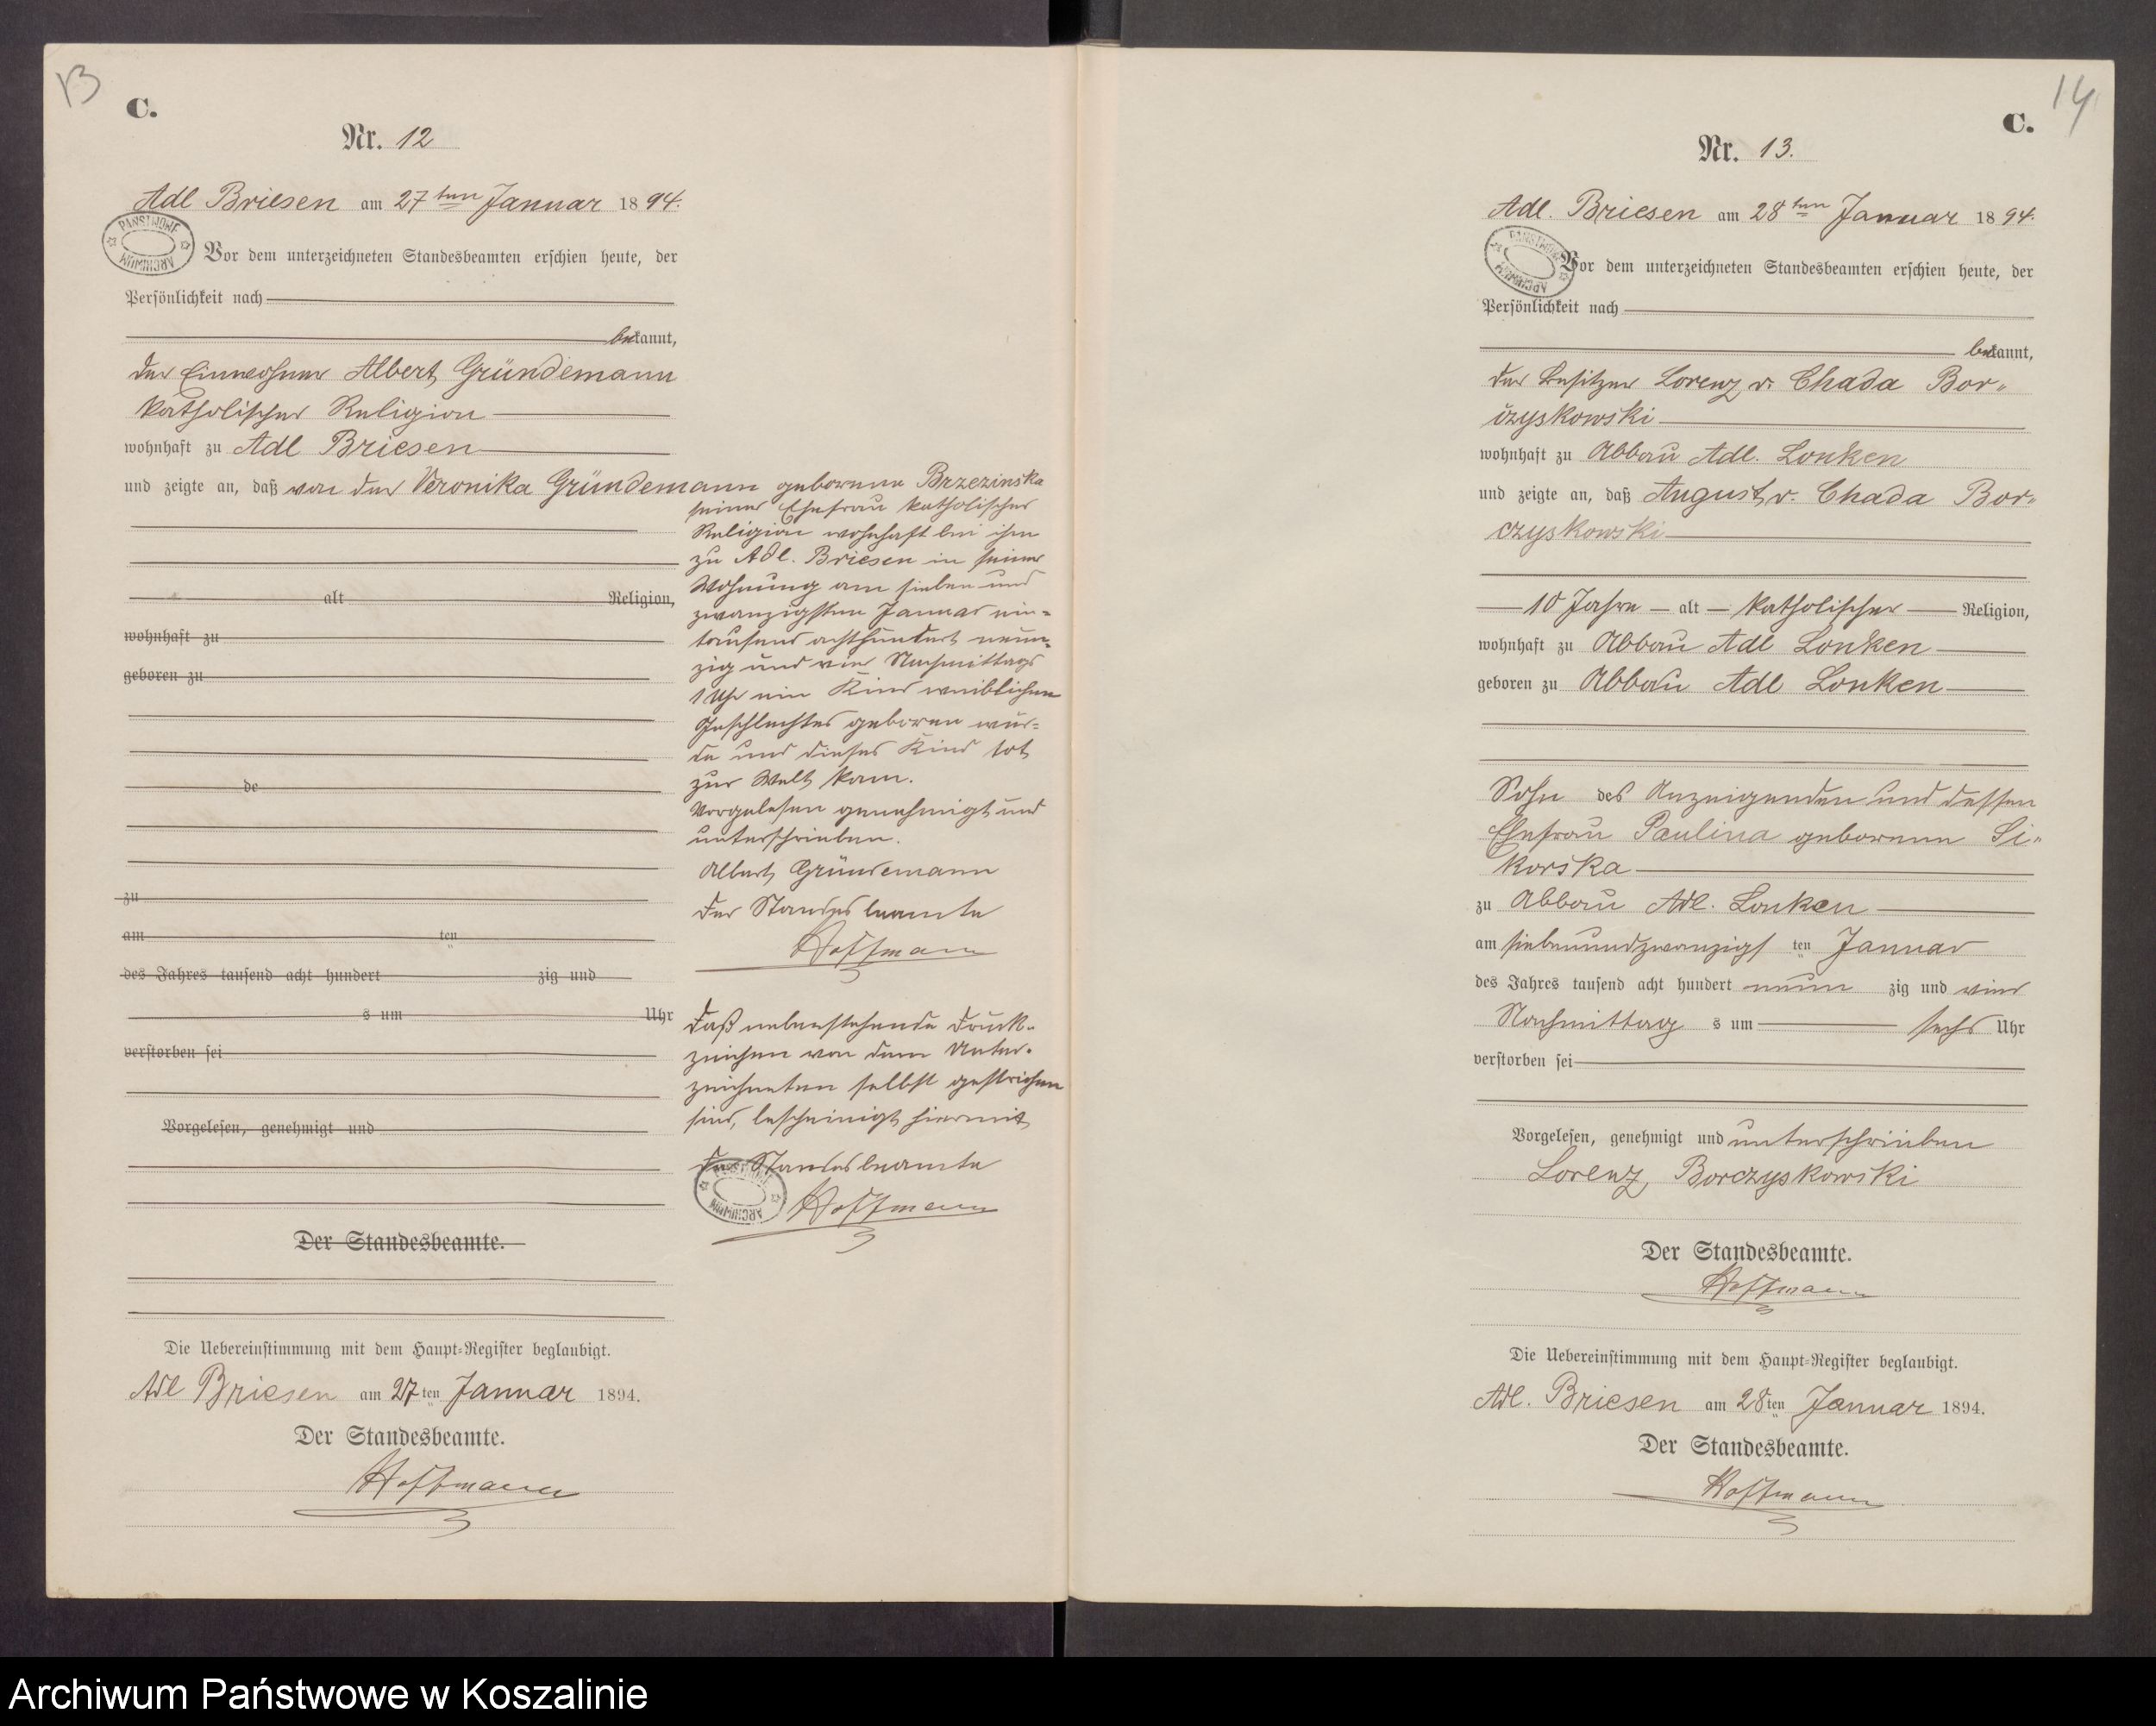 13
C.
Nr. 12
Adl Briesen am 27ten Januar 1894.
PAŃSTWOWE ARCHIWUM
Vor dem unterzeichneten Standesbeamten erschien heute, der
Persönlichkeit nach
bekannt,
der Einwohner Albert Gründemann
katholischer Religion
wohnhaft zu Adl Briesen
und zeigte an, daß von der Veronika Gründemann geborene Brzezinska
seiner Ehefrau katholischer
Religion wohnhaft bei ihm
zu Adl. Briesen in seiner
Wohnung am sieben und
zwanzigsten Januar ein=
tausend achthundert neun=
zig und vier Nachmittags
1 Uhr ein Kind weiblichen
Geschlechtes geboren wur=
de und dieses Kind tot
zur Welt kam.
Vorgelesen genehmigt und
unterschrieben.
Albert Gründemann
Der Standesbeamte
Hoffmann
Daß nebenstehende Druck=
zeichen von dem Unter=
zeichneten selbst gestrichen
sind, bescheinigt hiermit
Der Standesbeamte
PAŃSTWOWE ARCHIWUM
Hoffmann
alt Religion,
wohnhaft zu
geboren zu
de
zu
am ten
des Jahres tausend acht hundert zig und
s um Uhr
verstorben sei
Vorgelesen, genehmigt und
Der Standesbeamte.
Die Uebereinstimmung mit dem Haupt=Register beglaubigt.
Adl Briesen am 27ten Januar 1894.
Der Standesbeamte.
Hoffmann
14
C.
Nr. 13.
Adl. Briesen am 28ten Januar 1894.
PAŃSTWOWE ARCHIWUM
Vor dem unterzeichneten Standesbeamten erschien heute, der
Persönlichkeit nach
bekannt,
der Besitzer Lorenz v. Chada Bor=
czyskowski
wohnhaft zu Abbau Adl. Lonken
und zeigte an, daß August v. Chada Bor=
czyskowski
10 Jahre alt katholischer Religion,
wohnhaft zu Abbau Adl Lonken
geboren zu Abbau Adl Lonken
Sohn des Anzeigenden und dessen
Ehefrau Paulina geborenen Si=
korska
zu Abbau Adl. Lonken
am siebenundzwanzigsten Januar
des Jahres tausend acht hundert neunzig und vier
Nachmittags um sechs Uhr
verstorben sei
Vorgelesen, genehmigt und unterschrieben
Lorenz Borczyskowski
Der Standesbeamte.
Hoffmann
Die Uebereinstimmung mit dem Haupt=Register beglaubigt.
Adl. Briesen am 28ten Januar 1894.
Der Standesbeamte.
Hoffmann
Archiwum Państwowe w Koszalinie